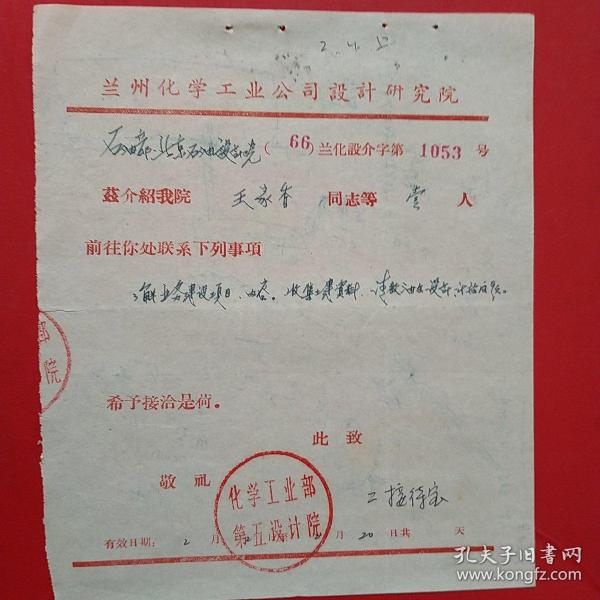 兰州化学工业公司設計研究院
石油部北京石油設計院(66)兰化設介字第1053号
茲介紹我院 王家香 同志等 壹 人
前往你处联系下列事項
了解 建设项目、内容。收集 資料、
希予接洽是荷。
此致
敬礼
化学工业部
第五设计院
二接待室
有效日期: 2月 月20日共 天
部
院
孔夫子旧书网
www.kongfz.com